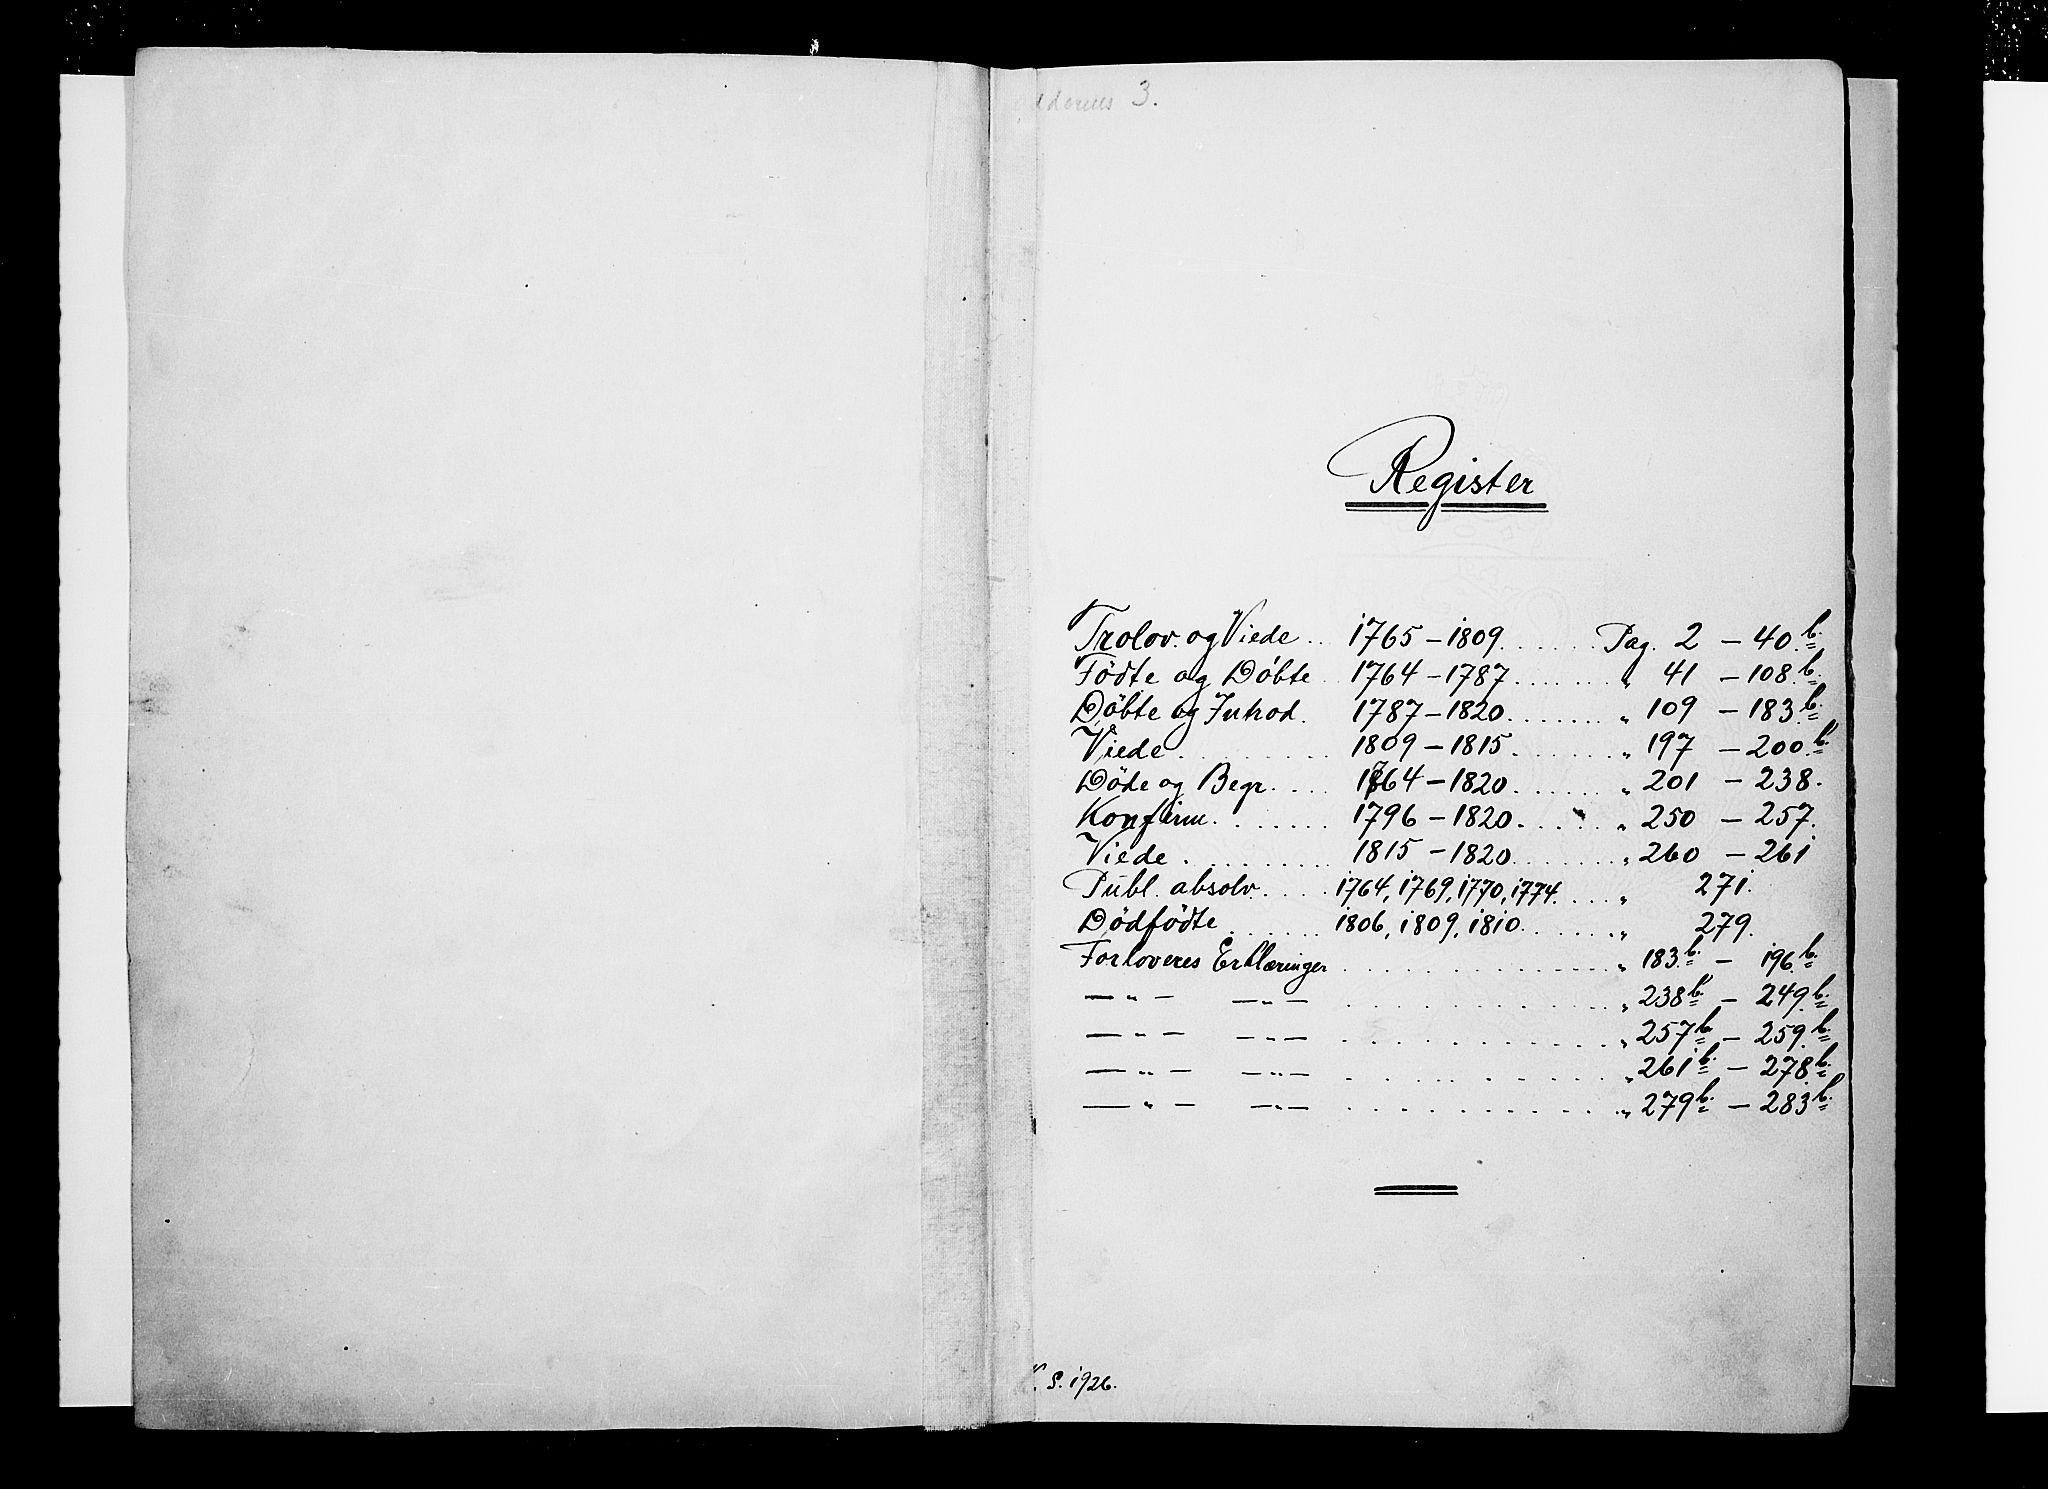 ddernes 3.
Register
Trolov. og Viede .. 1765 – 1809 ...... Pag. 2 – 40 b.
Födte og Döbte 1764 – 1787 ....... " 41 – 108 b.
Döbte og Introd. 1787 – 1820 ....... " 109 – 183 b.
Viede ......... 1809 – 1815 ....... " 197 – 200 b.
Döde og Begr. .... 1764 – 1820 ....... " 201 – 238.
Konfirm. ....... 1796 – 1820 ...... " 250 – 257.
Viede ......... 1815 – 1820 ....... " 260 – 261
Publ. absolv. .... 1764, 1769, 1770, 1774. .... " 271.
Dödfödte ...... 1806, 1809, 1810 ....... " 279.
Forloveres Erklæringer .............. " 183 b. – 196 b.
— " — — " — .............. " 238 b. – 249 b.
— " — — " — .............. " 257 b. – 259 b.
— " — — " — .............. " 261 b. – 278 b.
— " — — " — .............. " 279 b. – 283 b.
S. 1926.